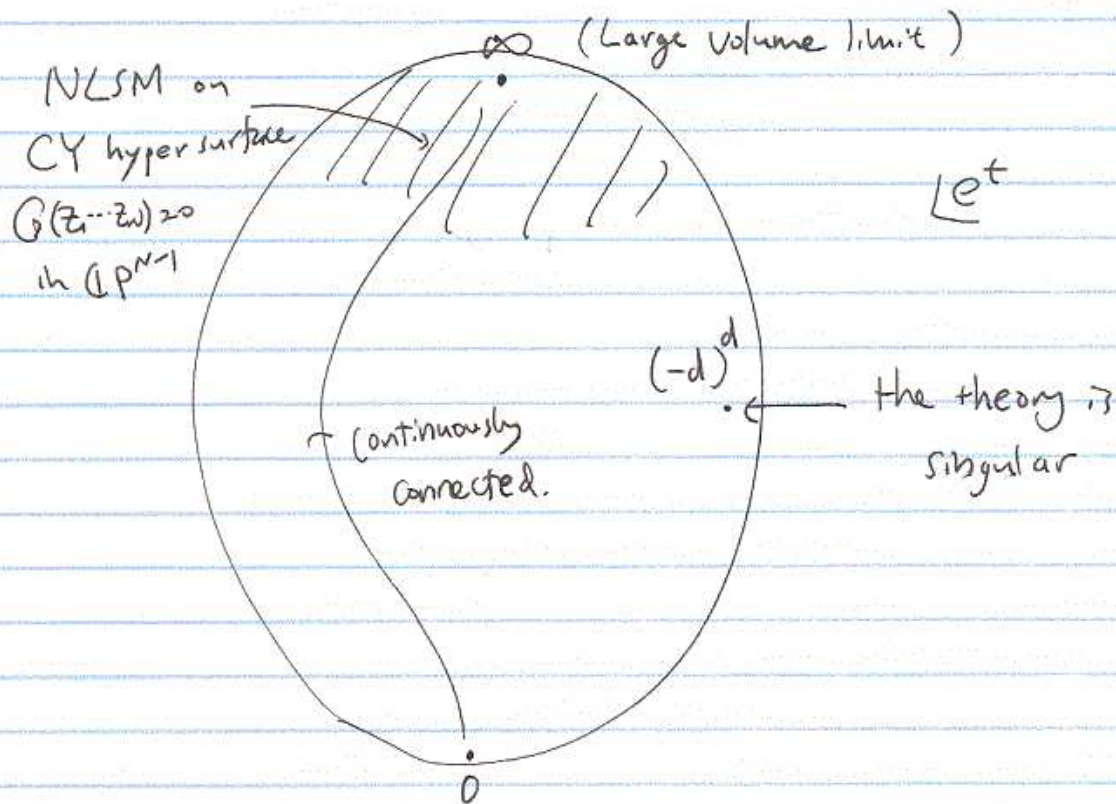 ∞ (Large volume limit)
NLSM on
CY hypersurface
G(Z₁⋯Z_N)=0
in ℂP^{N-1}
e^t
(-d)^d
the theory is
singular
continuously
connected.
0